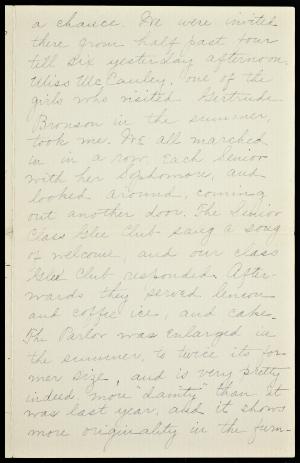 a chance. We were invited
there from half past four
till six yesterday afternoon.
Miss McCauley, one of the
girls who visited Gertrude
Bronson in the summer,
took me. We all marched
in in a row, each Senior
with her Sophomore, and
looked around, coming
out another door. The Senior
Class Glee Club sang a song
of welcome, and our class
Glee Club responded. After-
wards they served lemon
and coffee ice, and cake.
The Parlor was enlarged in
the summer, to twice its for-
mer size, and is very pretty
indeed, more "dainty" than it
was last year, and it shows
more originality in the furn-